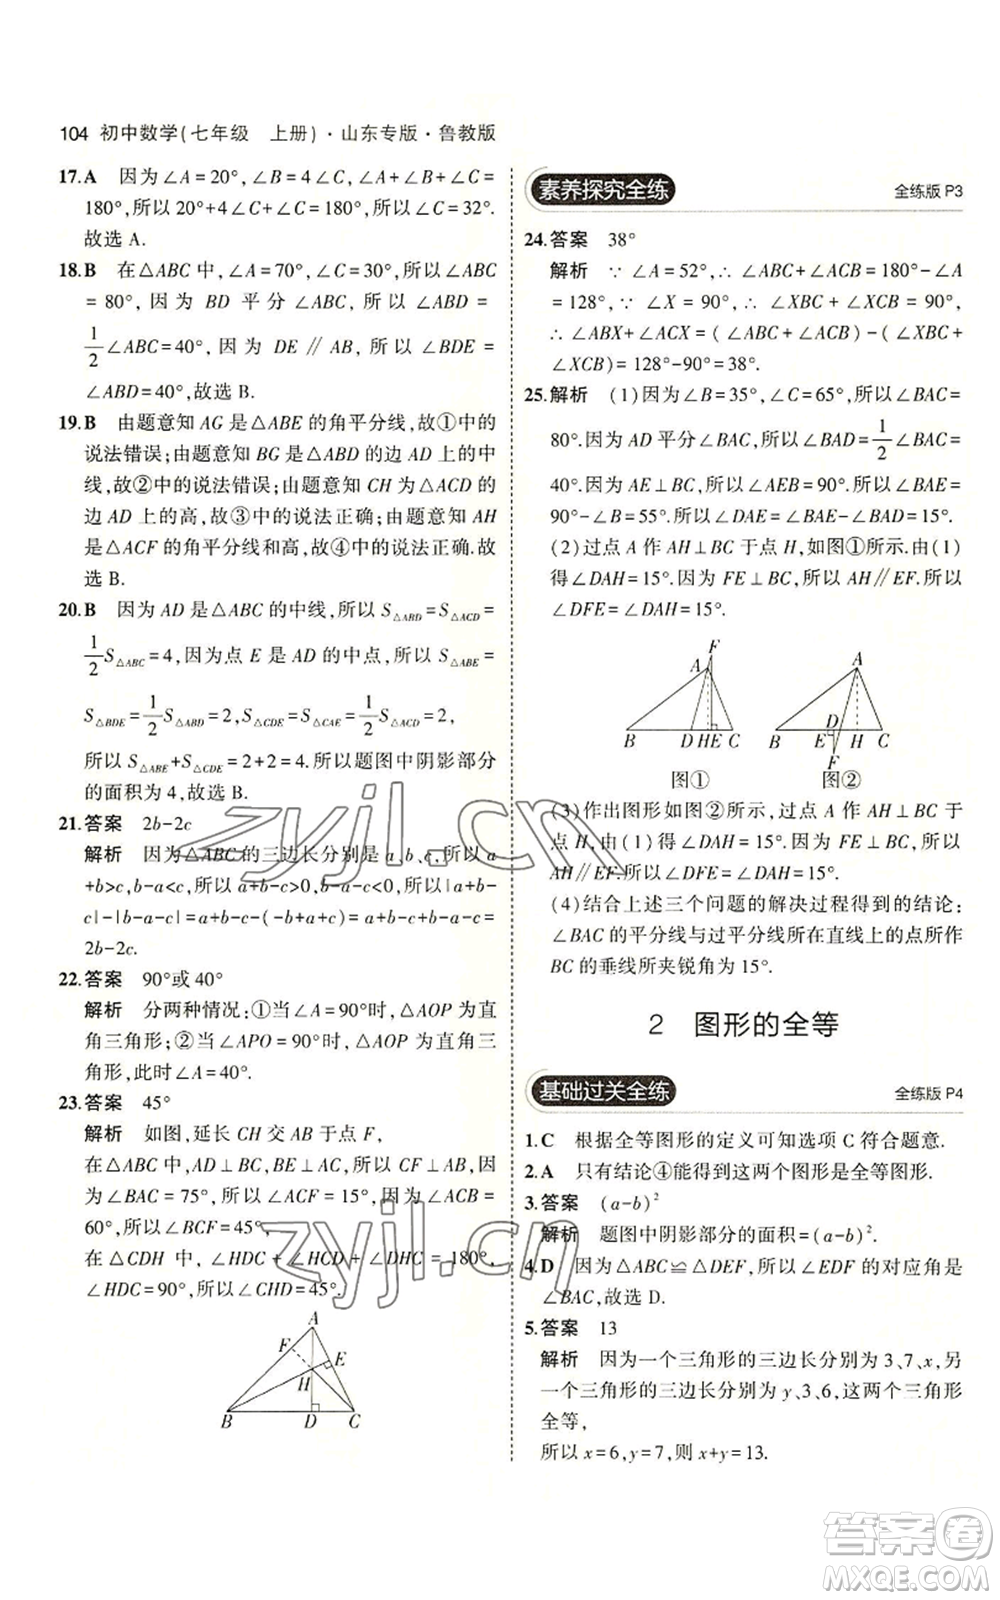 104 初中数学(七年级 上册)·山东专版·鲁教版
17.A 因为∠A=20°,∠B=4∠C,∠A+∠B+∠C=
180°,所以 20°+4∠C+∠C=180°,所以∠C=32°.
故选 A.
18.B 在△ABC 中,∠A=70°,∠C=30°,所以∠ABC
=80°,因为 BD 平分∠ABC,所以∠ABD=
1/2∠ABC=40°,因为 DE∥AB,所以∠BDE=
∠ABD=40°,故选 B.
19.B 由题意知 AG 是△ABE 的角平分线,故①中的
说法错误;由题意知 BG 是△ABD 的边 AD 上的中
线,故②中的说法错误;由题意知 CH 为△ACD 的
边 AD 上的高,故③中的说法正确;由题意知 AH
是△ACF 的角平分线和高,故④中的说法正确.故
选 B.
20.B 因为 AD 是△ABC 的中线,所以 S△ABD=S△ACD=
1/2S△ABC=4,因为点 E 是 AD 的中点,所以 S△ABE=
S△BDE=1/2S△ABD=2,S△CDE=S△CAE=1/2S△ACD=2,
所以 S△ABE+S△CDE=2+2=4,所以题图中阴影部分
的面积为 4,故选 B.
21.答案 2b-2c
解析 因为△ABC的三边长分别是 a、b、c,所以 a
+b>c,b-a<c,所以 a+b-c>0,b-a-c<0,所以|a+b-
c|-|b-a-c|=a+b-c-(-b+a+c)=a+b-c+b-a-c=
2b-2c.
22.答案 90°或 40°
解析 分两种情况:①当∠A=90°时,△AOP 为直
角三角形;②当∠APO=90°时,△AOP 为直角三角
形,此时∠A=40°.
23.答案 45°
解析 如图,延长 CH 交 AB 于点 F,
在△ABC 中,AD⊥BC,BE⊥AC,所以 CF⊥AB,因
为∠BAC=75°,所以∠ACF=15°,因为∠ACB=
60°,所以∠BCF=45°,
在△CDH 中,∠HDC+∠HCD+∠DHC=180°,
∠HDC=90°,所以∠CHD=45°.
A
F
E
H
B D C
素养探究全练 全练版 P3
24.答案 38°
解析 ∵∠A=52°,∴∠ABC+∠ACB=180°-∠A
=128°,∵∠X=90°,∴∠XBC+∠XCB=90°,
∴∠ABX+∠ACX=(∠ABC+∠ACB)-(∠XBC+
∠XCB)=128°-90°=38°.
25.解析 (1)因为∠B=35°,∠C=65°,所以∠BAC=
80°.因为 AD 平分∠BAC,所以∠BAD=1/2∠BAC=
40°.因为 AE⊥BC,所以∠AEB=90°.所以∠BAE=
90°-∠B=55°.所以∠DAE=∠BAE-∠BAD=15°.
(2)过点 A 作 AH⊥BC 于点 H,如图①所示.由(1)
得∠DAH=15°.因为 FE⊥BC,所以 AH∥EF.所以
∠DFE=∠DAH=15°.
F
A
B D H E C
图①
A
D
B E H C
F
图②
(3)作出图形如图②所示,过点 A 作 AH⊥BC 于
点 H,由(1)得∠DAH=15°.因为 FE⊥BC,所以
AH∥EF.所以∠DFE=∠DAH=15°.
(4)结合上述三个问题的解决过程得到的结论:
∠BAC 的平分线与过平分线所在直线上的点所作
BC 的垂线所夹锐角为 15°.
2 图形的全等
基础过关全练 全练版 P4
1.C 根据全等图形的定义可知选项 C 符合题意.
2.A 只有结论④能得到这两个图形是全等图形.
3.答案 (a-b)²
解析 题图中阴影部分的面积=(a-b)².
4.D 因为△ABC≌△DEF,所以∠EDF 的对应角是
∠BAC,故选 D.
5.答案 13
解析 因为一个三角形的三边长分别为 3、7、x,另
一个三角形的三边长分别为 y、3、6,这两个三角形
全等,
所以 x=6,y=7,则 x+y=13.
zyjl.cn
zyjl.cn
答案卷
MXQE.COM